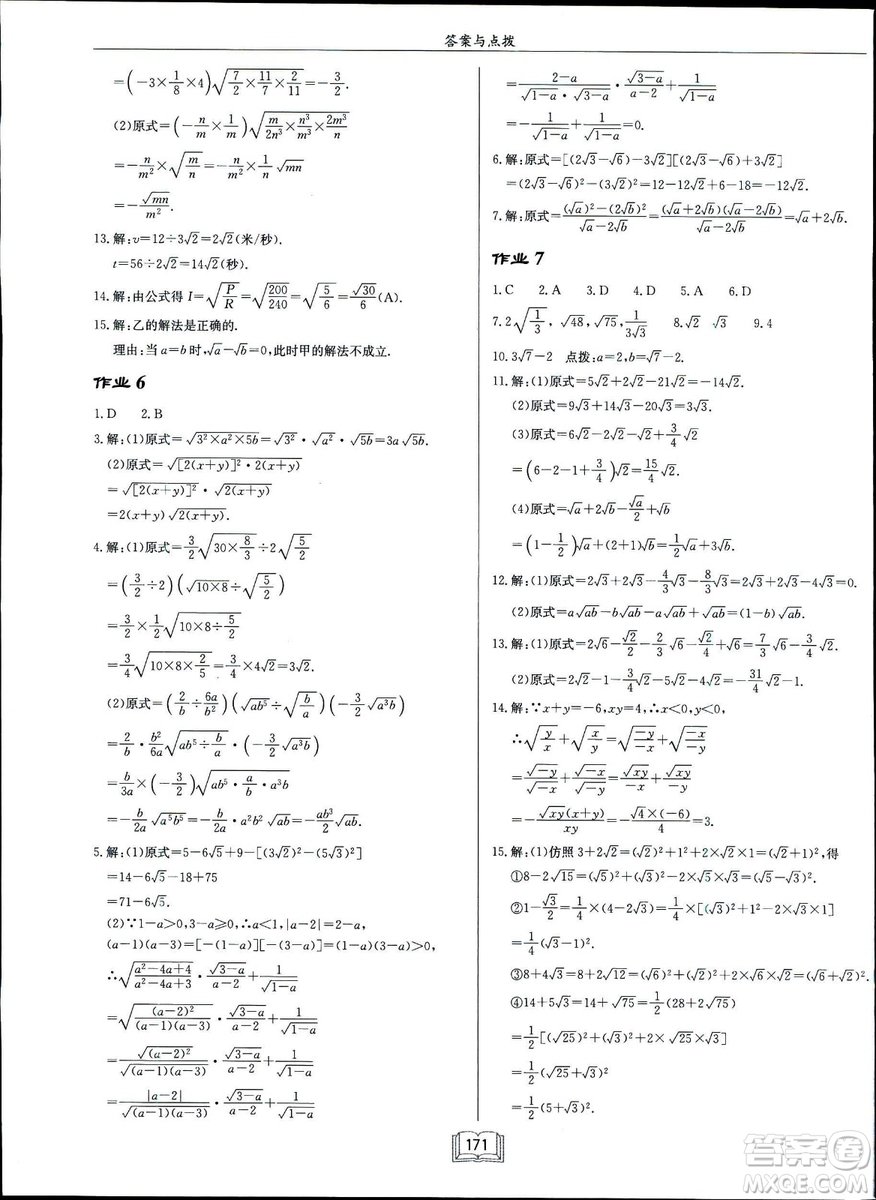 答案与点拨
=(-3×1/8×4)√(7/2×11/7×2/11)=-3/2.
(2)原式=(-n/m×1/m)√(m/2n³×n³/m³×2m³/n)
=-n/m²×√(m/n)=-n/m²×1/n√mn
=-√mn/m².
13.解:v=12÷3√2=2√2(米/秒).
t=56÷2√2=14√2(秒).
14.解:由公式得 I=√(P/R)=√(200/240)=√(5/6)=√30/6(A).
15.解:乙的解法是正确的.
理由:当a=b时,√a-√b=0,此时甲的解法不成立.
作业 6
1.D 2.B
3.解:(1)原式=√(3²×a²×5b)=√3²·√a²·√5b=3a√5b.
(2)原式=√([2(x+y)]²·2(x+y))
=√[2(x+y)]²·√2(x+y)
=2(x+y)√2(x+y).
4.解:(1)原式=3/2√(30×8/3)÷2√(5/2)
=(3/2÷2)(√(10×8)÷√(5/2))
=3/2×1/2√(10×8÷5/2)
=3/4√(10×8×2/5)=3/4×4√2=3√2.
(2)原式=(2/b÷6a/b²)(√ab⁵÷√(b/a))(-3/2√a³b)
=2/b·b²/6a√(ab⁵÷b/a)·(-3/2√a³b)
=b/3a×(-3/2)√(ab⁵·a/b·a³b)
=-b/2a√a⁵b⁵=-b/2a·a²b²√ab=-ab³/2√ab.
5.解:(1)原式=5-6√5+9-[(3√2)²-(5√3)²]
=14-6√5-18+75
=71-6√5.
(2)∵1-a>0,3-a≥0,∴a<1,|a-2|=2-a,
(a-1)(a-3)=[-(1-a)][-(3-a)]=(1-a)(3-a)>0,
∴√((a²-4a+4)/(a²-4a+3))·√(3-a)/(a-2)+1/√(1-a)
=√((a-2)²/((a-1)(a-3)))·√(3-a)/(a-2)+1/√(1-a)
=√(a-2)²/√((a-1)(a-3))·√(3-a)/(a-2)+1/√(1-a)
=|a-2|/√((1-a)(3-a))·√(3-a)/(a-2)+1/√(1-a)
=(2-a)/(√(1-a)·√(3-a))·√(3-a)/(a-2)+1/√(1-a)
=-1/√(1-a)+1/√(1-a)=0.
6.解:原式=[(2√3-√6)-3√2][(2√3-√6)+3√2]
=(2√3-√6)²-(3√2)²=12-12√2+6-18=-12√2.
7.解:原式=((√a)²-(2√b)²)/(√a-2√b)=(√a+2√b)(√a-2√b)/(√a-2√b)=√a+2√b.
作业 7
1.C 2.A 3.D 4.D 5.A 6.D
7.2√(1/3),√48,√75,1/(3√3) 8.√2 √3 9.4
10.3√7-2 点拨:a=2,b=√7-2.
11.解:(1)原式=5√2+2√2-21√2=-14√2.
(2)原式=9√3+14√3-20√3=3√3.
(3)原式=6√2-2√2-√2+3/4√2
=(6-2-1+3/4)√2=15/4√2.
(4)原式=√a+2√b-√a/2+√b
=(1-1/2)√a+(2+1)√b=1/2√a+3√b.
12.解:(1)原式=2√3+2√3-4/3√3-8/3√3=4√3-4√3=0.
(2)原式=a√ab-b√ab-a√ab+√ab=(1-b)√ab.
13.解:(1)原式=2√6-√2/2-2/3√6-√2/4+√6=7/3√6-3/4√2.
(2)原式=1/4√2-1-8√2=-31/4√2-1.
14.解:∵x+y=-6,xy=4,∴x<0,y<0,
∴√(y/x)+√(x/y)=√(-y/-x)+√(-x/-y)
=√-y/√-x+√-x/√-y=√xy/-x+√xy/-y
=-√xy(x+y)/xy=-√4×(-6)/4=3.
15.解:(1)仿照3+2√2=(√2)²+1²+2×√2×1=(√2+1)²,得
①8-2√15=(√5)²+(√3)²-2×√5×√3=(√5-√3)².
②1-√3/2=1/4×(4-2√3)=1/4×[(√3)²+1²-2×√3×1]
=1/4(√3-1)².
③8+4√3=8+2√12=(√6)²+(√2)²+2×√6×√2=(√6+√2)².
④14+5√3=14+√75=1/2(28+2√75)
=1/2[(√25)²+(√3)²+2×√25×√3]
=1/2(√25+√3)²
=1/2(5+√3)².
171
答案圈